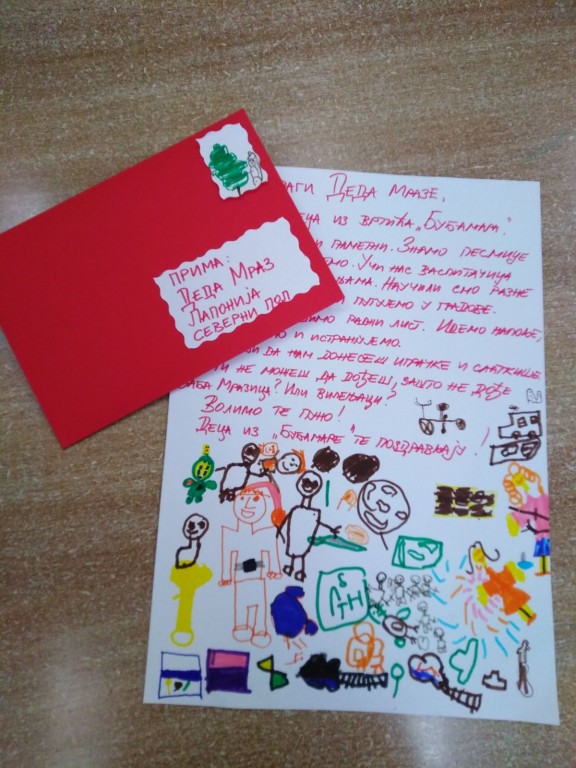 ПРИМА:
ДЕДА МРАЗ
ЛАПОНИЈА
СЕВЕРНИ ПОЛ
ДЕДА МРАЗЕ,
ИЗ ВРТИЋА „БУБАМАРА“.
И ПАМЕТНИ. ЗНАМО ПЕСМИЦЕ
УЧИ НАС ВАСПИТАЧИЦА
НАУЧИЛИ СМО РАЗНЕ
ПУТУЈЕМО У ГРАДОВЕ.
РАДНИ ЛИСТ. ИДЕМО НАПОЉЕ,
И ИСТРАЖУЈЕМО.
ДА НАМ ДОНЕСЕШ ИГРАЧКЕ И СЛАТКИШЕ
ТИ НЕ МОЖЕШ ДА ДОЂЕШ, ЗАШТО НЕ ДОЂЕ
БАБА МРАЗИЦА? ИЛИ ВИЛЕЊАЦИ?
ВОЛИМО ТЕ ПУНО!
ДЕЦА ИЗ „БУБАМАРЕ“ ТЕ ПОЗДРАВЉАЈУ!